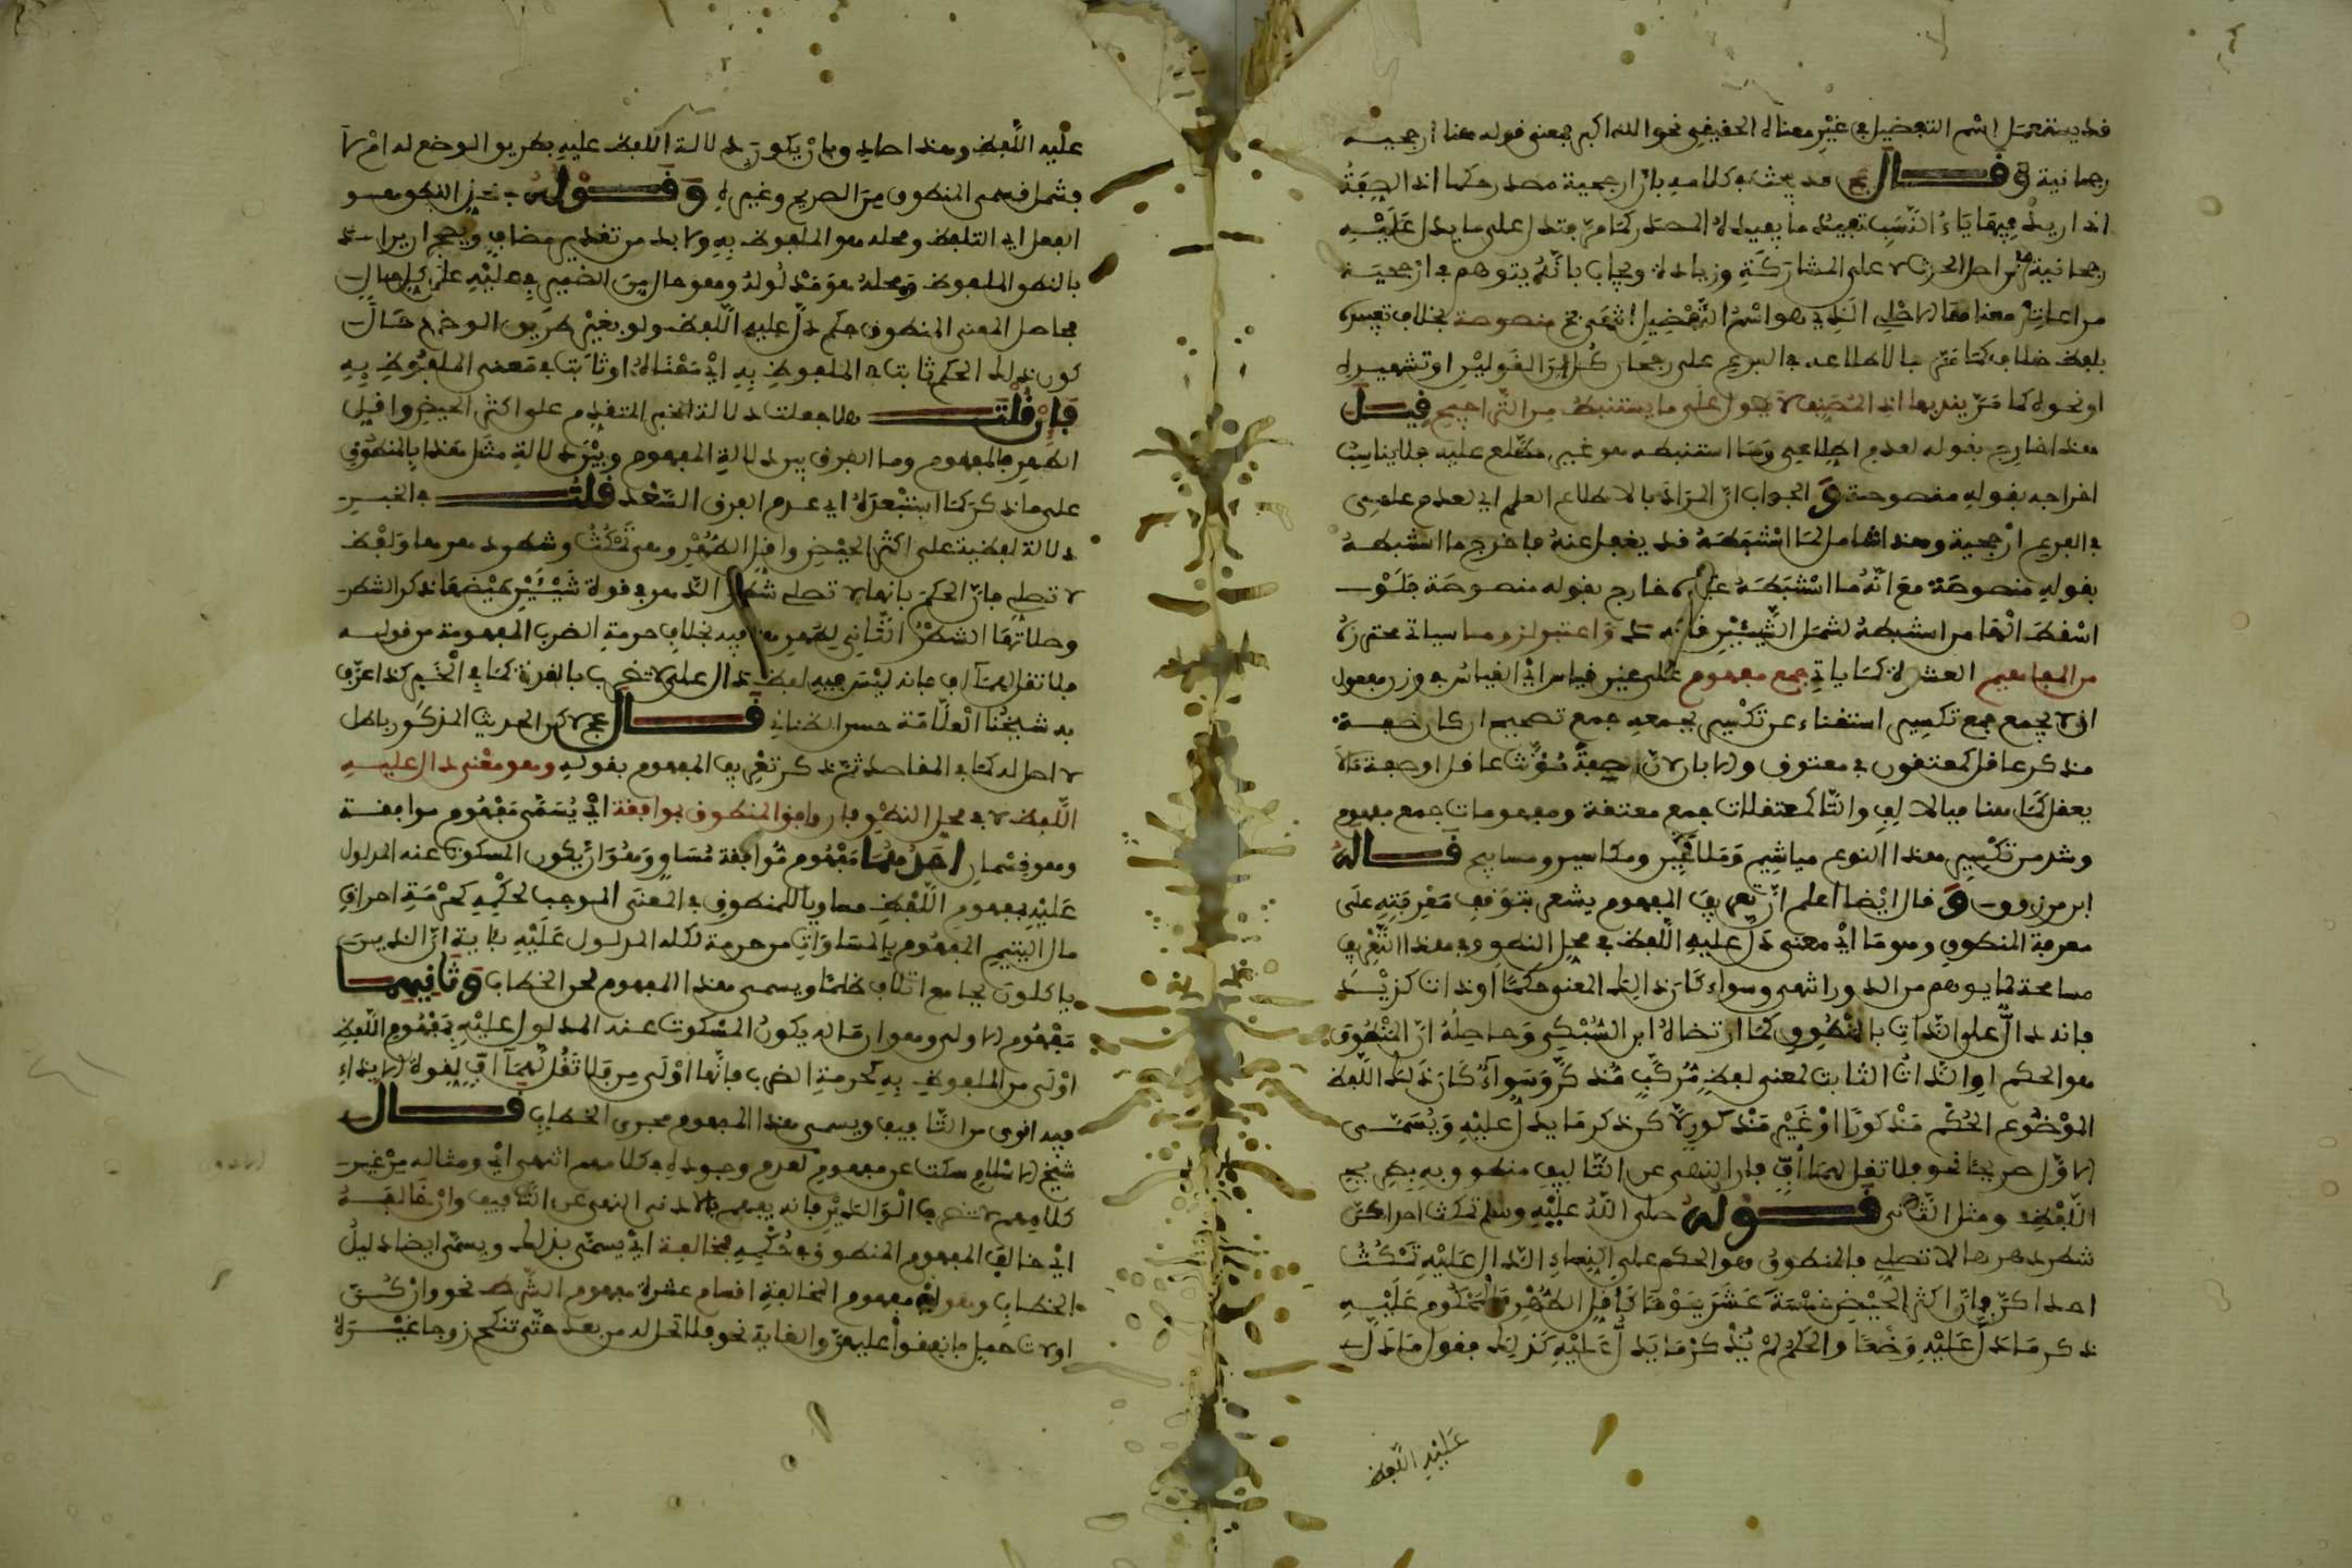 قد يستعمل اسم التفضيل في غير معناه الحقيقي نحو الله اكبر فمعنى قوله هنا ارجحية
رجحانية وقال عج قد يبحث في كلامه بان ارجحية مصدر حكما اذ الصفة
اذا اريد فيها ياء النسب تفيد ما يفيده المصدر كما مر فتدل على ما يدل عليه
رجحانية من اصل الحدث لا على المشاركة وزيادة ويجاب بانه يتوهم في ارجحية
مراعاة معناها الاصلي الذي هو اسم التفضيل انتهى عج منصوصة بخلاف تعبيره
بلفظ خلاف كما مر لاطلاعه في الفرع على رجحان كل من القولين او تشهيره
او نحوه كما مر يفيد بها ان المصنف لا يعول على ما يستنبط من الترجيح قيل
هذا خارج بقوله لعدم اطلاعي وما استنبطه هو غير مطلع عليه فلا يناسب
اخراجه بقوله منصوصة و الجواب ان المراد بالاطلاع العلم اي لعدم علمي
في الفرع ارجحية وهذا شامل لما استنبطه قد يغفل عنه فاخرج ما استنبطه
بقوله منصوصة مع انه ما استنبطه خارج بقوله منصوصة فلو
اسقط انها من استنبطه لشمل الشيئين واعتبر لزوما سياتي محترزه
من المفاهيم العشرة كما ياتي جمع مفهوم على غير قياس اي القياس في وزن مفعول
ان لا يجمع جمع تكسير استغناء عن تكسيره بجمعه جمع تصحيح ان كان صفة
مذكر عاقل كمعتقون في معتوق والا بان لان صفة مؤنث عاقل او صفة ما لا
يعقل كما هنا فبالالف والتا كمعتقات جمع معتقة ومفهومات جمع مفهوم
وشذ من تكسير هذا النوع مياشيم وملاعين ومكاسير ومسابيح قاله
ابن مرزوق و قال ايضا اعلم ان تعريف المفهوم يشعر بتوقف معرفته على
معرفة المنطوق وهو ما اي معنى دل عليه اللفظ في محل النطق وفي هذا التعريف
مسامحة لما يوهم من الدور انتهى وسواء كان ذلك المعنى حكما او ذات كزيد
فانه دال على الذات بالمنطوق كما ارتضاه ابن السبكي وحاصله ان المنطوق
هو الحكم او الذات الثابت لمعنى لفظ مركب مذكر وسواء كان ذلك اللفظ
الموضوع الحكم مذكورا او غير مذكور لا كن ذكر ما يدل عليه ويسمى
الاول صريحا نحو فلا تقل لهما اف فان النهي عن التافيف منطوق به بصريح
اللفظ ومثل الثاني قوله صلى الله عليه وسلم تمكث احداكن
شطر دهرها لا تصلي فالمنطوق هو الحكم على النساء الدال عليه تمكث
احداكن فان اكثر الحيض خمسة عشر يوما واقل الطهر والمحكوم عليه
ذكر ما دل عليه وضعا والحكم لم يذكر ما يدل عليه كذلك فقول ما دل
عليه اللفظ
عليه اللفظ وهذا صادق بان يكون دلالة اللفظ عليه بطريق الوضع له ام لا
فشمل قسمي المنطوق من الصريح وغيره وقوله في محل النطق هو
الفعل اي التلفظ ومحله هو الملفوظ به ولا بد من تقديم مضاف ويصح ان يراد
بالنطق الملفوظ ومحله هو مدلوله وهو حال من الضمير في عليه على كل حال
فحاصل المعنى المنطوق حكم دل عليه اللفظ ولو بغير طريق الوضع حال
كون ذلك الحكم ثابتا في الملفوظ به اي معناه او ثابتا في معنى الملفوظ به
فان قلت هلا جعلت دلالة الخبر المتقدم على اكثر الحيض واقل
الطهر بالمفهوم وما الفرق بين دلالة المفهوم وبين دلالة مثل هذا بالمنطوق
على ما ذكر كما استبعده اي عدم الفرق السعد قلت في الخبر
دلالة لفظية على اكثر الحيض واقل الطهر وهي تمكث وشطر دهرها ولفظ
لا تصلي فان الحكم بانها لا تصلي شطر الدهر في قوة شيئين حيضها ذكر الشطر
وصلاتها الشطر الثاني لطهر بخلاف حرمة الضرب المفهومة من قوله
فلا تقل لهما اف فانه ليس فيه لفظ دال على لا تضرب بالقوة كما في الخبر كذا عرف
به شيخنا العلامة حسن الضناني قال عج لا كن الحديث المذكور باطل
لا اصل له كما في المقاصد ثم ذكر تعريف المفهوم بقوله وهو معنى دال عليه
اللفظ لا في محل النطق فان وافق المنطوق بموافقة اي يسمى مفهوم موافقة
وهو قسمان احدهما مفهوم موافقة مساو وهو ان يكون المسكوت عنه المدلول
عليه بمفهوم اللفظ مساويا للمنطوق في المعنى الموجب لحكمه كحرمة احراق
مال اليتيم المفهوم بالمساوات من حرمة اكله المدلول عليه باية ان الذين
ياكلون بجامع اتلاف ظلما ويسمى هذا المفهوم لحن الخطاب وثانيهما
مفهوم الاولى وهو ان ماله يكون المسكوت عنه المدلول عليه بمفهوم اللفظ
اولى من الملفوظ به كحرمة الضرب فانها اولى من فلا تقل لهما اف لقوة الايذاء
فيه اقوى من التافيف ويسمى هذا المفهوم فحوى الخطاب قال
شيخ الاسلام سكت عن مفهوم لعدم وجوده في كلامهم انتهى اي ومثاله من غير
كلامهم لا تضرب الوالدين فانه يفهم بالادنى النهي عن التافيف وان خالفه
اي خالف المفهوم المنطوق في حكمه فمخالفة اي يسمى بذلك ويسمى ايضا دليل
الخطاب وهو اي مفهوم المخالفة اقسام عشرة مفهوم الشرط نحو وان كن
اولات حمل فانفقوا عليهن والغاية نحو فلا تحل له من بعد حتى تنكح زوجا غيره